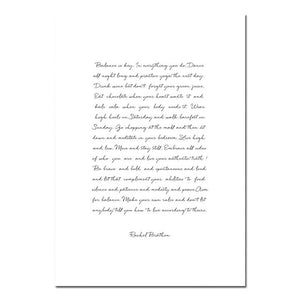 Balance is key. In everything you do. Dance
all night long and practice yoga the next day.
Drink wine but don't forget your green juice.
Eat chocolate when your heart wants it and
kale salad when your body needs it. Wear
high heels on Saturday and walk barefoot on
Sunday. Go shopping at the mall and then sit
down and meditate in your bedroom. Live high
and low. Move and stay still. Embrace all sides
of who you are and live your authentic truth!
Be brave and bold and spontaneous and loud
and let that compliment your abilities to find
silence and patience and modesty and peace. Aim
for balance. Make your own rules and don't let
anybody tell you how to live according to theirs.
Rachel Brathen